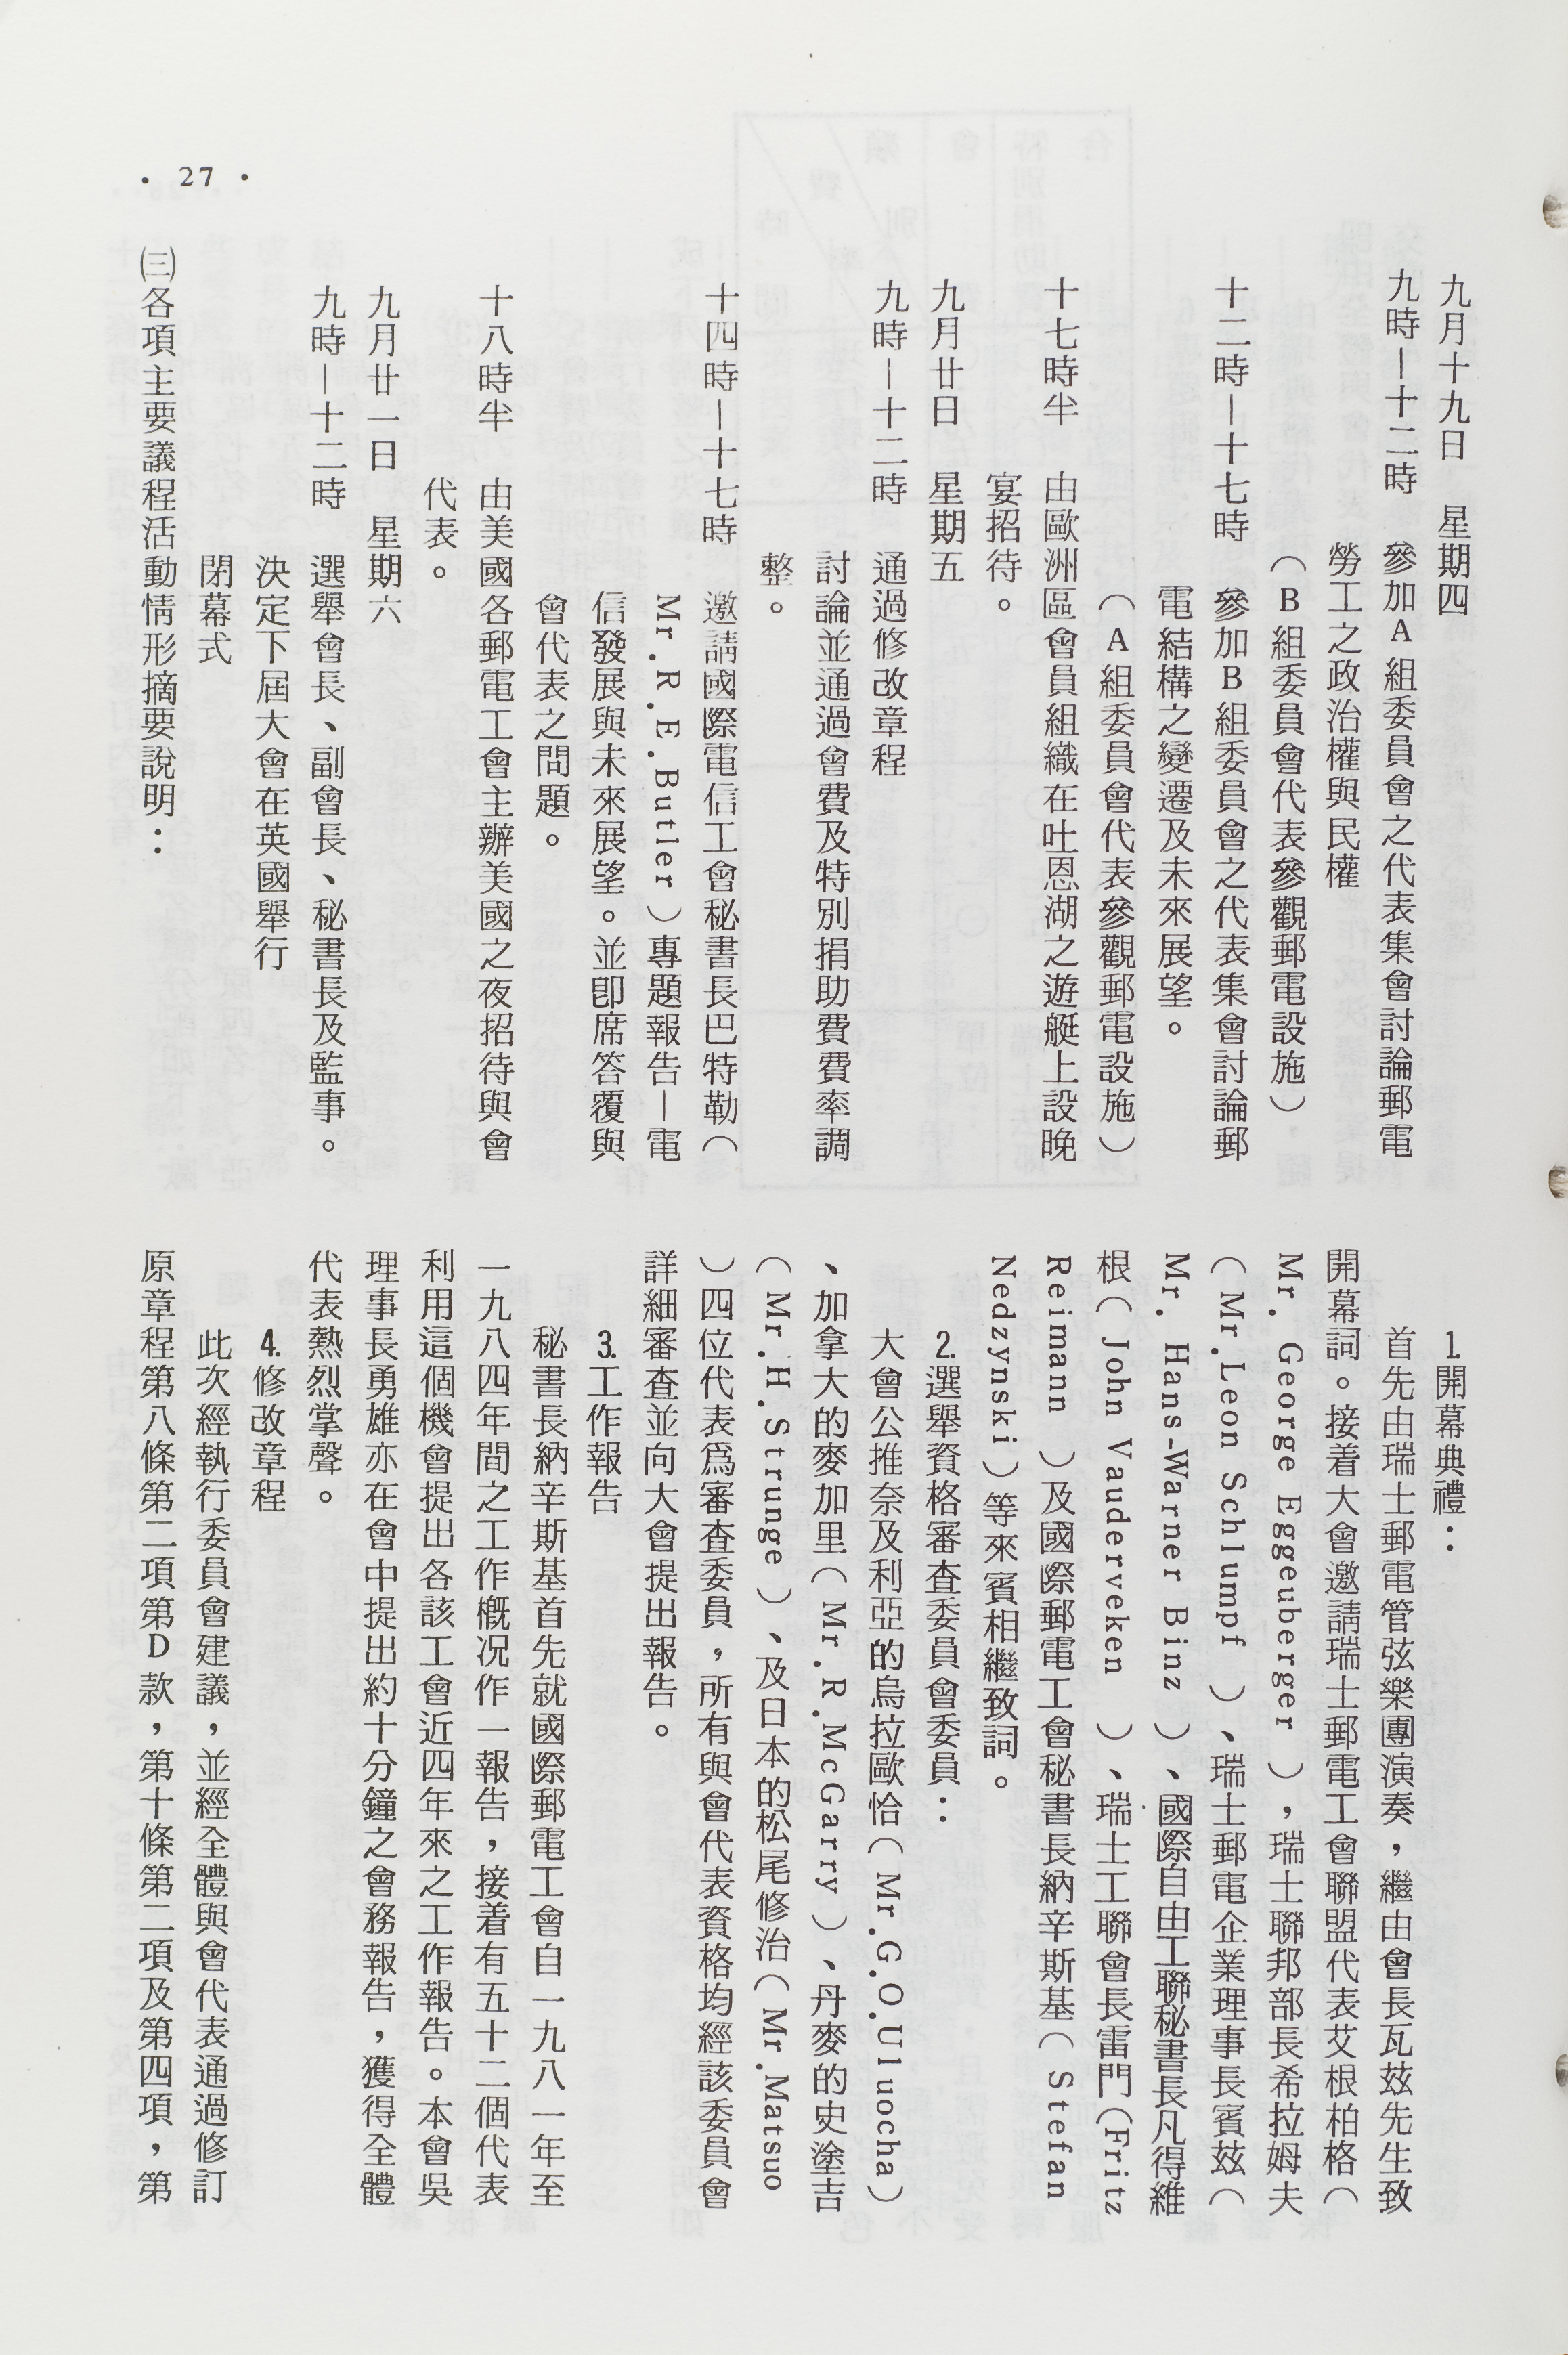 • 27 •
九月十九日　星期四
九時－十二時　參加A組委員會之代表集會討論郵電
勞工之政治權與民權
（B組委員會代表參觀郵電設施）
十二時－十七時　參加B組委員會之代表集會討論郵
電結構之變遷及未來展望。
（A組委員會代表參觀郵電設施）
十七時半　由歐洲區會員組織在吐恩湖之遊艇上設晚
宴招待。
九月廿日　星期五
九時－十二時　通過修改章程
討論並通過會費及特別捐助費費率調
整。
十四時－十七時　邀請國際電信工會秘書長巴特勒（
Mr.R.E.Butler）專題報告－電
信發展與未來展望。並卽席答覆與
會代表之問題。
十八時半　由美國各郵電工會主辦美國之夜招待與會
代表。
九月廿一日　星期六
九時－十二時　選舉會長、副會長、秘書長及監事。
決定下屆大會在英國舉行
閉幕式
㈢各項主要議程活動情形摘要說明：
1.開幕典禮：
首先由瑞士郵電管弦樂團演奏，繼由會長瓦玆先生致
開幕詞。接着大會邀請瑞士郵電工會聯盟代表艾根柏格（
Mr. George Eggeuberger），瑞士聯邦部長希拉姆夫
（Mr.Leon Schlumpf）、瑞士郵電企業理事長賓玆（
Mr. Hans-Warner Binz）、國際自由工聯秘書長凡得維
根（John Vauderveken）、瑞士工聯會長雷門（Fritz
Reimann）及國際郵電工會秘書長納辛斯基（Stefan
Nedzynski）等來賓相繼致詞。
2.選舉資格審查委員會委員：
大會公推奈及利亞的烏拉歐恰（Mr.G.O.Uluocha）
、加拿大的麥加里（Mr.R.McGarry）、丹麥的史塗吉
（Mr.H.Strunge）、及日本的松尾修治（Mr.Matsuo
）四位代表爲審查委員，所有與會代表資格均經該委員會
詳細審查並向大會提出報告。
3.工作報告
秘書長納辛斯基首先就國際郵電工會自一九八一年至
一九八四年間之工作概況作一報告，接着有五十二個代表
利用這個機會提出各該工會近四年來之工作報告。本會吳
理事長勇雄亦在會中提出約十分鐘之會務報告，獲得全體
代表熱烈掌聲。
4.修改章程
此次經執行委員會建議，並經全體與會代表通過修訂
原章程第八條第二項第D款，第十條第二項及第四項，第